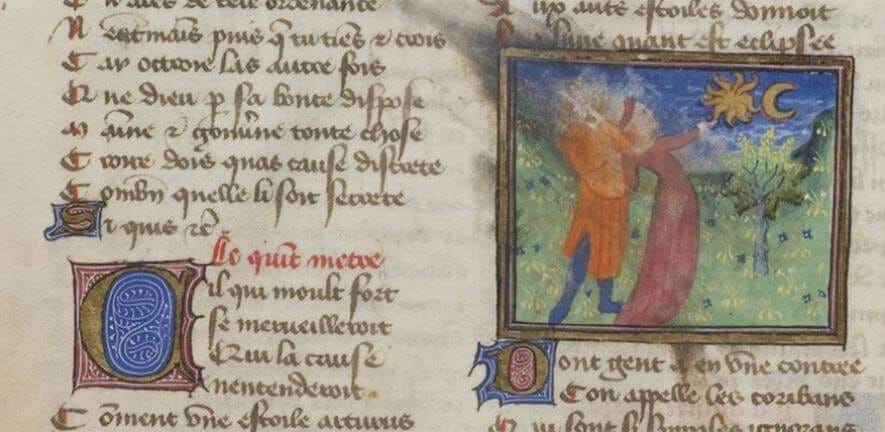 de tele ordenance
Neentmais puis q̄ tu tiēs & crois
Car octroie las autre fois
Que dieu p sa bonte dispose
Maine & gouūne toute chose
Croire dois quas cause discrete
Combn̄ quelle li soit secrete
Si quis ⁊c̄
Le quīt metre
Cil qui moult fort
se merueilleroit
Qui la cause
nentenderoit.
Coment vne estoile arturus
Aux autres estoiles donnoit
La lune quant est eclipsee
Dont gent a en vne contree
Con appelle les coribans
Qui sont si simples ignorans